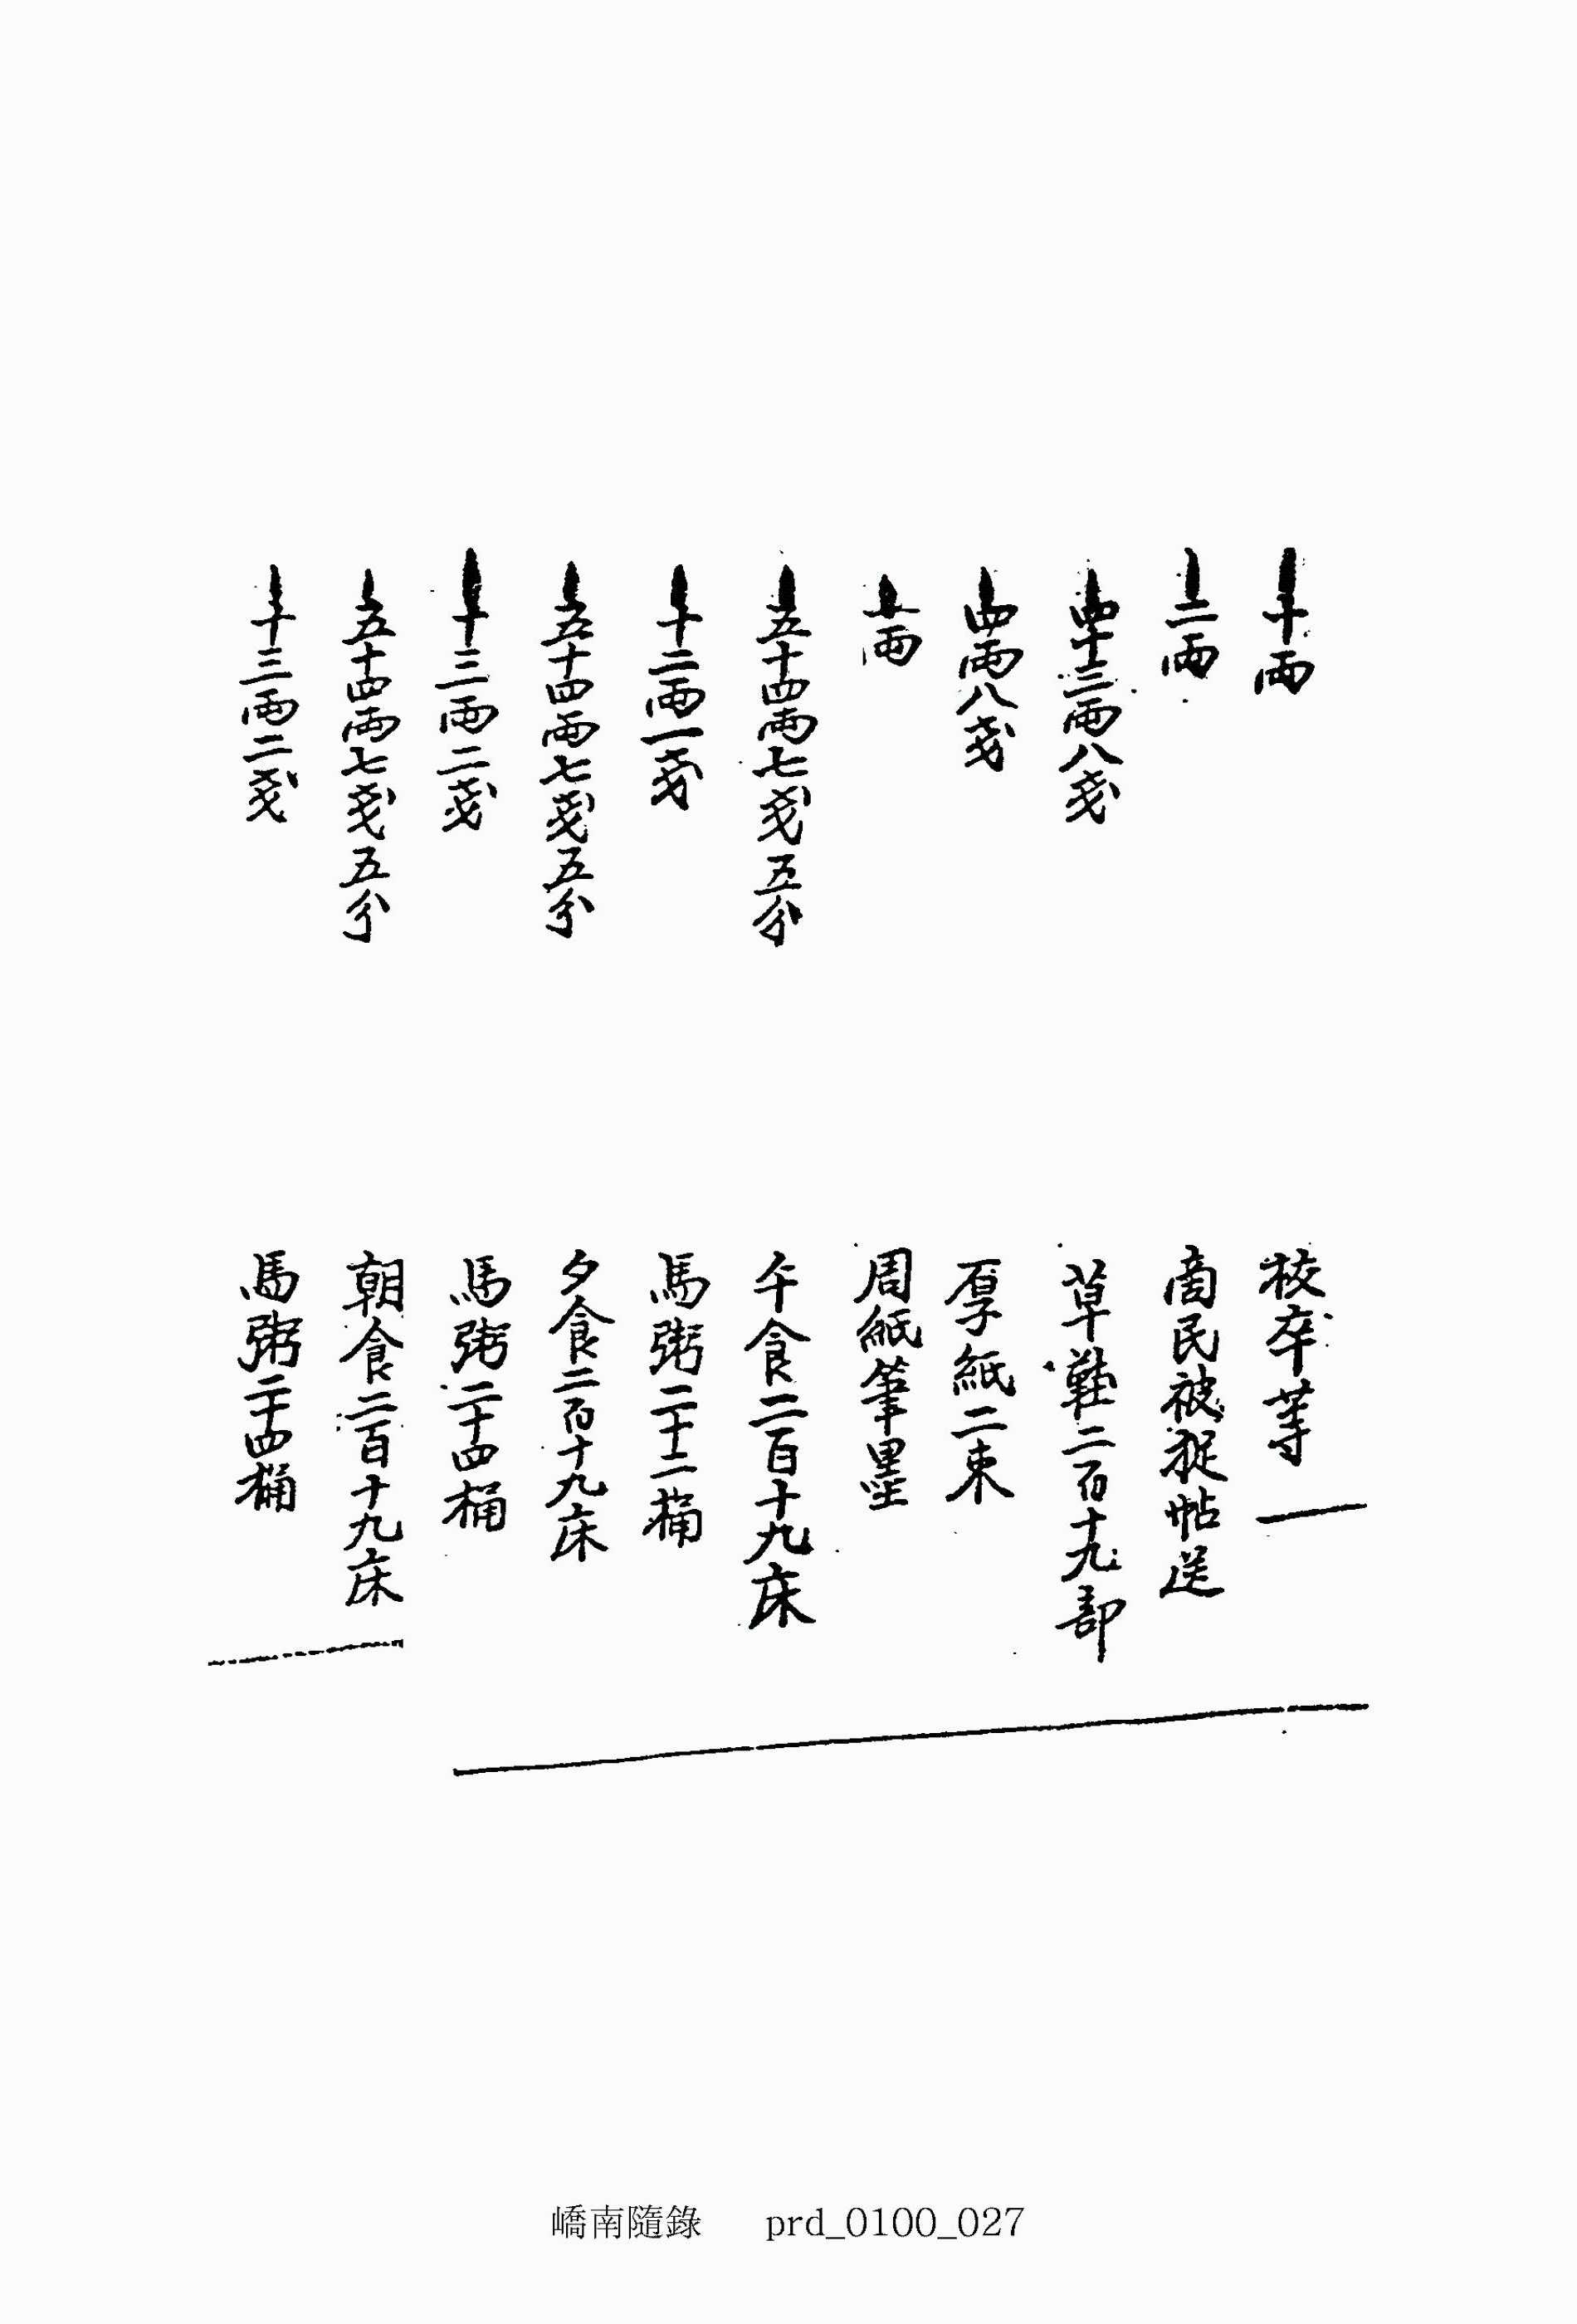 十兩 校卒等
二兩 商民被捉帖送
四十三兩八戔 草鞋二百十九部
四兩八戔 厚紙二束
一兩 周紙筆墨
五十四兩七戔五分 午食二百十九床
十二兩一戔 馬粥二十二桶
五十四兩七戔五分 夕食二百十九床
十三兩二戔 馬粥二十四桶
五十四兩七戔五分 朝食二百十九床
十三兩二戔 馬粥二十四桶
嶠南隨錄 prd_0100_027